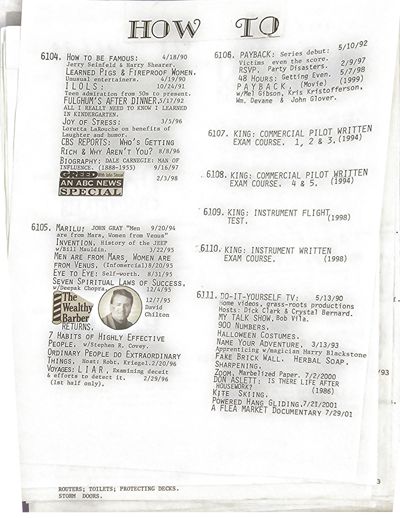 HOW TO
6104. HOW TO BE FAMOUS: 4/18/90
Jerry Seinfeld & Harry Shearer.
LEARNED PIGS & FIREPROOF WOMEN.
Unusual entertainers. 4/19/90
I L O L S: 10/24/91
Teen admiration from 50s to present.
FULGHUM'S AFTER DINNER. 5/17/92
ALL I REALLY NEED TO KNOW I LEARNED
IN KINDERGARTEN.
JOY OF STRESS: 3/5/96
Loretta LaRouche on benefits of
Laughter and humor.
CBS REPORTS: WHO'S GETTING
RICH & WHY AREN'T YOU? 8/8/96
BIOGRAPHY: DALE CARNEGIE: MAN OF
INFLUENCE. (1888-1955) 9/16/97
GREED
AN ABC NEWS
SPECIAL
2/3/98
6105. MARILU: JOHN GRAY "Men 9/20/94
are from Mars, Women from Venus"
INVENTION. History of the JEEP
w/Bill Mauldin. 3/22/95
MEN ARE FROM MARS, WOMEN ARE
FROM VENUS. (Infomercial) 8/20/95
EYE TO EYE: Self-worth. 8/31/95
SEVEN SPIRITUAL LAWS OF SUCCESS.
w/Deepak Chopra. 12/4/95
The
Wealthy
Barber
12/7/95
David
Chilton
RETURNS.
7 HABITS OF HIGHLY EFFECTIVE
PEOPLE. w/Stephen R. Covey.
ORDINARY PEOPLE DO EXTRAORDINARY
THINGS. Host: Robt. Kriegel. 2/20/96
VOYAGES: L I A R, Examining deceit
& efforts to detect it. 2/29/96
(1st half only).
6106. PAYBACK: Series debut: 5/10/92
Victims even the score.
RSVP. Party Disasters. 2/9/97
48 HOURS: Getting Even. 5/7/98
P A Y B A C K, (Movie) (1999)
w/Mel Gibson, Kris Kristofferson,
Wm. Devane & John Glover.
6107. KING: COMMERCIAL PILOT WRITTEN
EXAM COURSE. 1, 2 & 3. (1994)
6108. KING: COMMERCIAL PILOT WRITTEN
EXAM COURSE. 4 & 5. (1994)
6109. KING: INSTRUMENT FLIGHT
TEST. (1998)
6110. KING: INSTRUMENT WRITTEN
EXAM COURSE. (1998)
6111. DO-IT-YOURSELF TV: 5/13/90
Home videos, grass-roots productions
Hosts: Dick Clark & Crystal Bernard.
MY TALK SHOW. Bob Vila.
900 NUMBERS.
HALLOWEEN COSTUMES.
NAME YOUR ADVENTURE. 3/13/93
Apprenticing w/magician Harry Blackstone
FAKE BRICK WALL. HERBAL SOAP.
SHARPENING.
ZOOM. Marbelized Paper. 7/2/2000
DON ASLETT: IS THERE LIFE AFTER
HOUSEWORK? (1986)
KITE SKIING.
POWERED HANG GLIDING. 7/21/2001
A FLEA MARKET DOCUMENTARY 7/29/01
/93
3
ROUTERS; TOILETS; PROTECTING DECKS.
STORM DOORS.